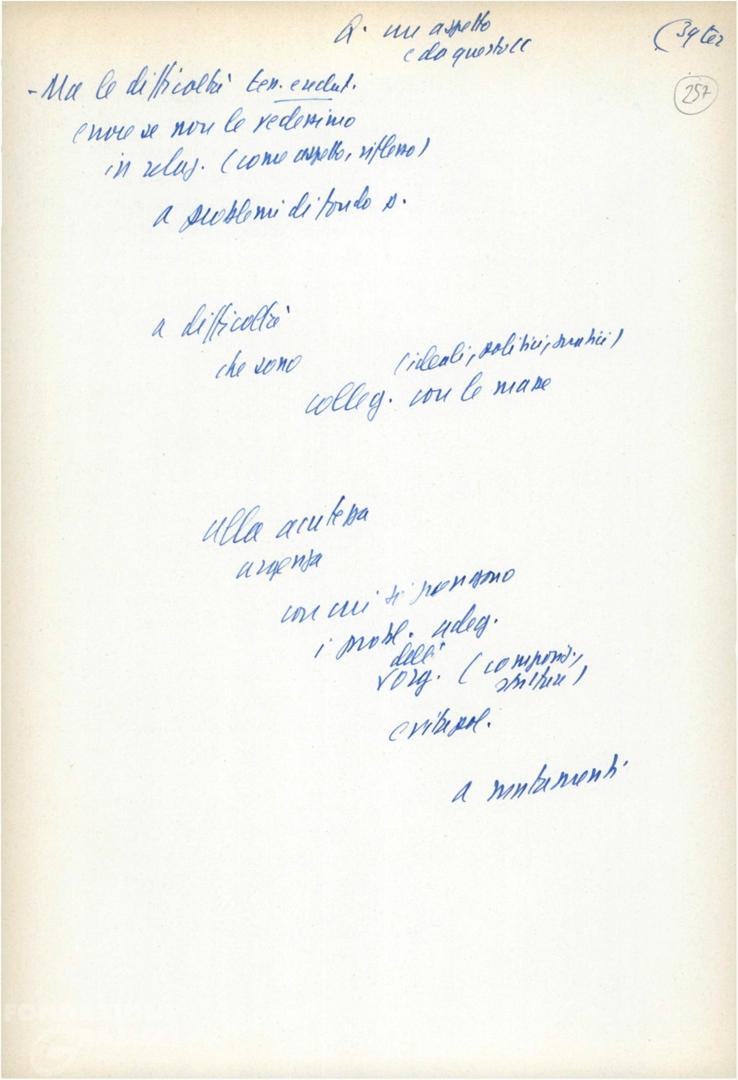 un aspetto
e da queste
(39 ter
257
- Ma le difficoltà
errore se non le vedessimo
in relaz. (come aspetto, riflesso)
a problemi di fondo
a difficoltà
che sono
(ideali, politici, pratici)
colleg. con le masse
alla acutezza
urgenza
con cui si pongono
i probl. adeg.
dell'
org. (composiz.,
strutture)
e vita pol.
a mutamenti